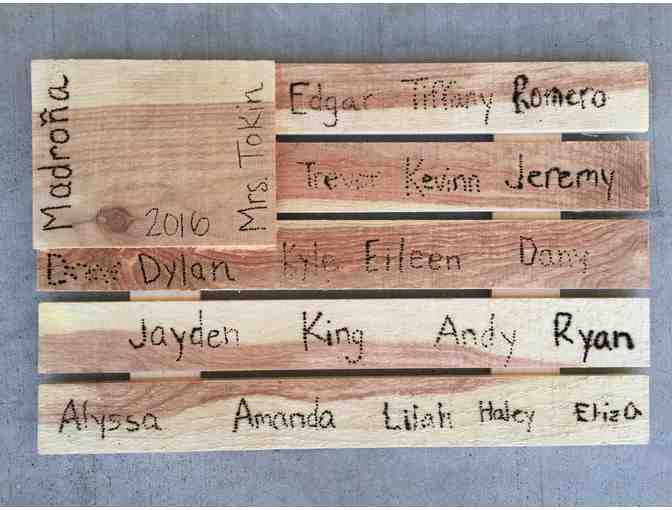 Madroña
2016
Mrs. Tokin
Edgar Tiffany Romero
Trevor Kevinn Jeremy
Drew Dylan Kyle Eileen Dany
Jayden King Andy Ryan
Alyssa Amanda Lilah Haley Eliza